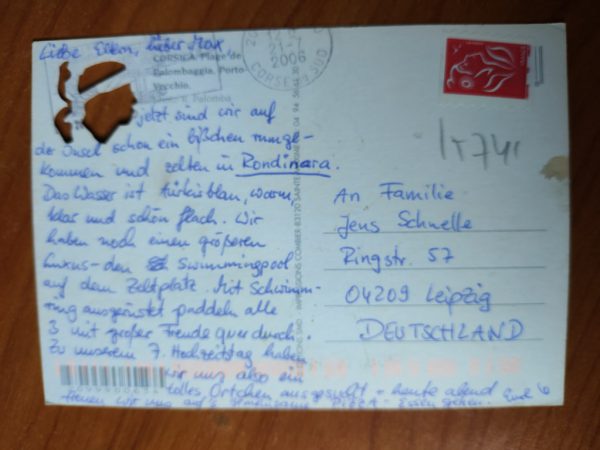 Liebe Eltern, lieber Max
CORSICA, Plage de
Palombaggia, Porto
Vecchio.
jetzt sind wir auf
der Insel schon ein bißchen rumge-
kommen und zelten in Rondinara.
Das Wasser ist türkisblau, warm,
klar und schön flach. Wir
haben noch einen größeren
Luxus - den Swimmingpool
auf dem Zeltplatz. Mit Schwimm-
ausgerüstet paddeln alle
3 mit großer Freude quer durch.
Zu unserem 7. Hochzeitstag haben
wir uns also ein
tolles Örtchen ausgesucht - heute abend
freuen wir uns auf's gemeinsame PIZZA - Essen gehen. Eure 6
21-
2006
CORSE
An Familie
Jens Schnelle
Ringstr. 57
04209 Leipzig
DEUTSCHLAND